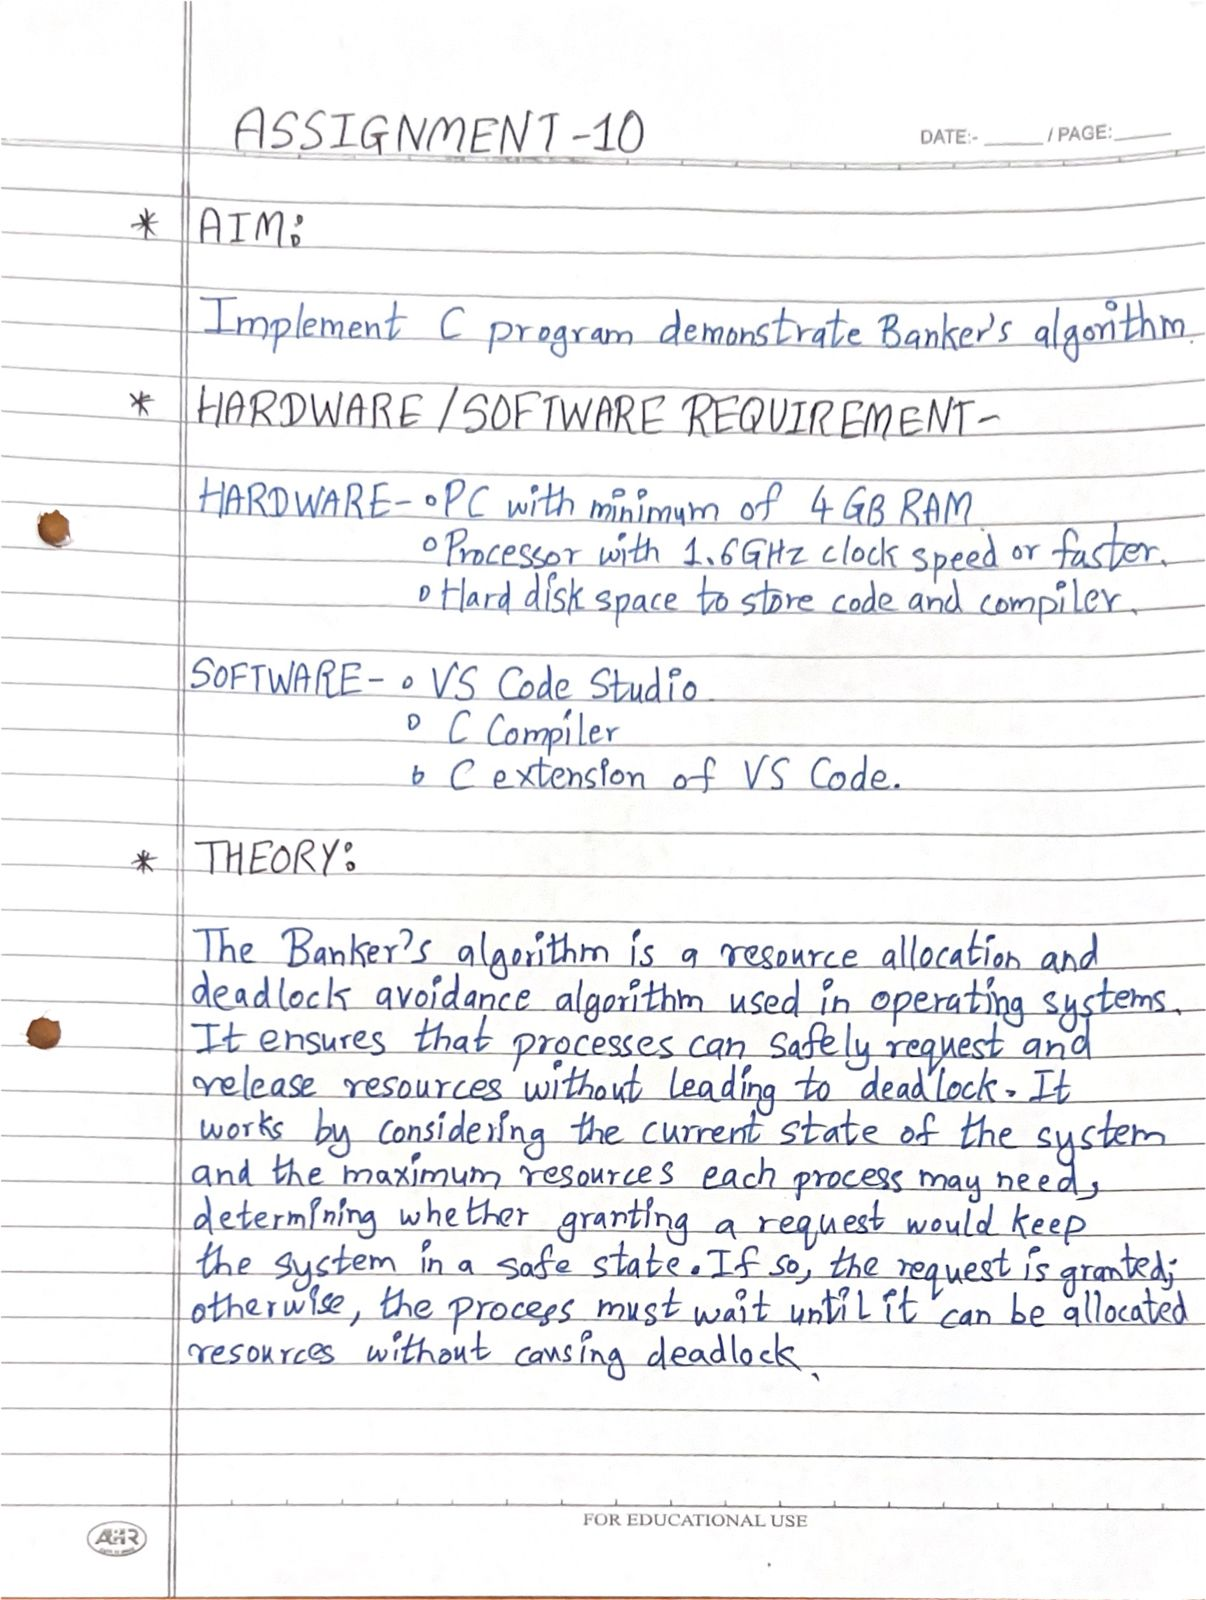 ASSIGNMENT-10
DATE:- _____ / PAGE: _____
* AIM:
Implement C program demonstrate Banker's algorithm.
* HARDWARE/SOFTWARE REQUIREMENT-
HARDWARE- o PC with minimum of 4 GB RAM
o Processor with 1.6GHz clock speed or faster.
o Hard disk space to store code and compiler.
SOFTWARE- o VS Code Studio
o C Compiler
o C extension of VS Code.
* THEORY:
The Banker's algorithm is a resource allocation and
deadlock avoidance algorithm used in operating systems.
It ensures that processes can safely request and
release resources without leading to deadlock. It
works by considering the current state of the system
and the maximum resources each process may need,
determining whether granting a request would keep
the system in a safe state. If so, the request is granted;
otherwise, the process must wait until it can be allocated
resources without causing deadlock.
FOR EDUCATIONAL USE
AHR